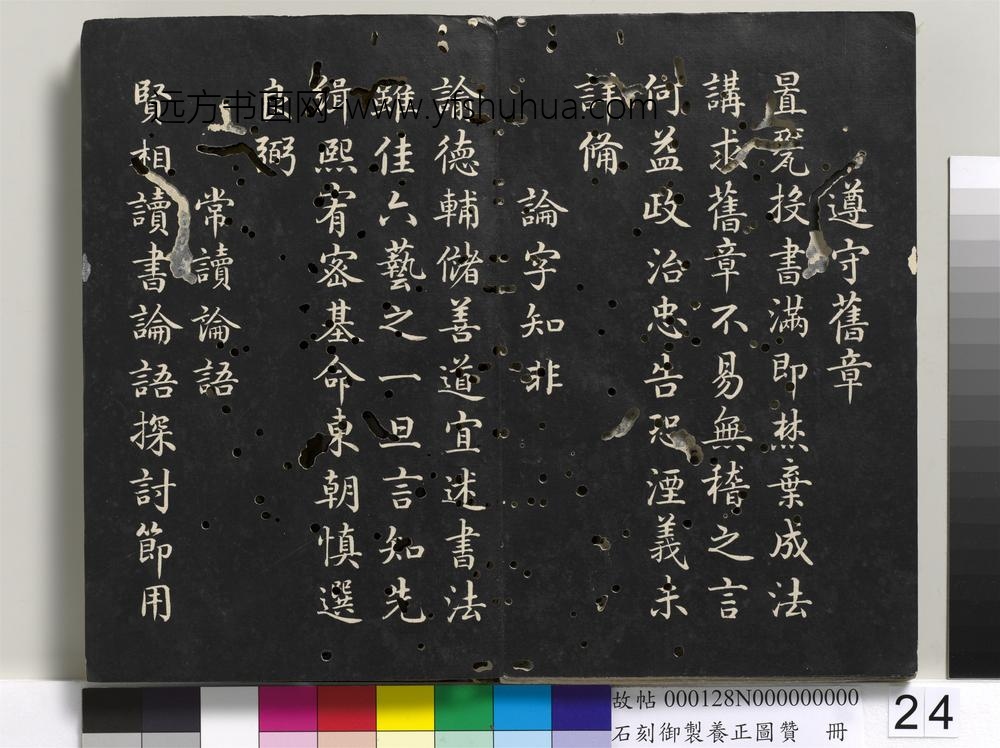 遵守舊章
置甕投書滿即焚棄成法
講求舊章不易無稽之言
何益政治忠告恐湮義未
詳備
論字知非
論德輔儲善道宜述書法
雖佳六藝之一旦言知先
緝熙宥密基命東朝慎選
良弼
常讀論語
賢相讀書論語探討節用
远方书画网 www.yfshuhua.com
故帖 000128N000000000
石刻御製養正圖贊 冊
24